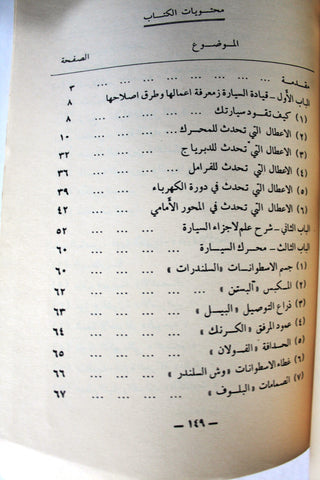 محتويات الكتاب
الموضوع
الصفحة
مقدمة ... ... ... ... ... ... ... ٣
الباب الأول - قيادة السيارة ومعرفة اعمالها وطرق اصلاحها ٨
(١) كيف تقود سيارتك ... ... ... ... ٨
(٢) الاعطال التي تحدث للمحرك ... ... ... ١٠
(٣) الاعطال التي تحدث للدبرياج ... ... ... ٣٢
(٤) الاعطال التي تحدث للفرامل ... ... ... ٣٦
(٥) الاعطال التي تحدث في دورة الكهرباء ... ... ٣٩
(٦) الاعطال التي تحدث في المحور الأمامي ... ... ٤٢
الباب الثاني - شرح علم لاجزاء السيارة ... ... ٥٢
الباب الثالث - محرك السيارة ... ... ... ٦٠
(١) جسم الاسطوانات «السلندرات» ... ... ... ٦٠
(٢) المكبس «البستن» ... ... ... ... ٦٢
(٣) ذراع التوصيل «البييل» ... ... ... ... ٦٣
(٤) عمود المرفق «الكرنك» ... ... ... ... ٦٤
(٥) الحدافة «الفولان» ... ... ... ... ٦٥
(٦) غطاء الاسطوانات «وش السلندر» ... ... ... ٦٦
(٧) الصمامات «البلوف» ... ... ... ... ٦٧
— ١٤٩ —